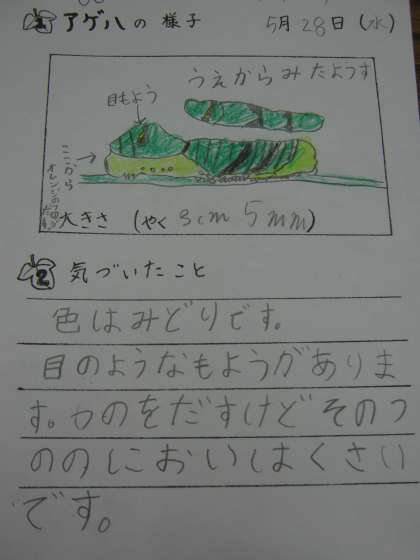 1 アゲハの様子 5月28日(水)
うえからみたようす
目もよう
ここから
オレンジのつの
大きさ (やく 3cm 5mm)
2 気づいたこと
色はみどりです。
目のようなもようがありま
す。つのをだすけどそのつ
ののにおいはくさい
です。